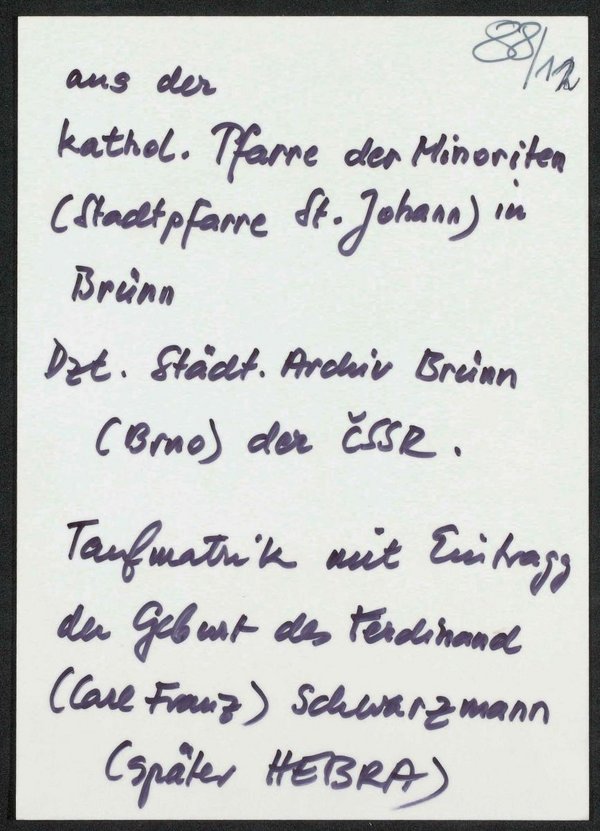 88/12
aus der
kathol. Pfarre der Minoriten
(Stadtpfarre St. Johann) in
Brünn
Dzt. Städt. Archiv Brünn
(Brno) der ČSSR.
Taufmatrik mit Eintragg
der Geburt des Ferdinand
(Carl Franz) Schwarzmann
(später HEBRA)